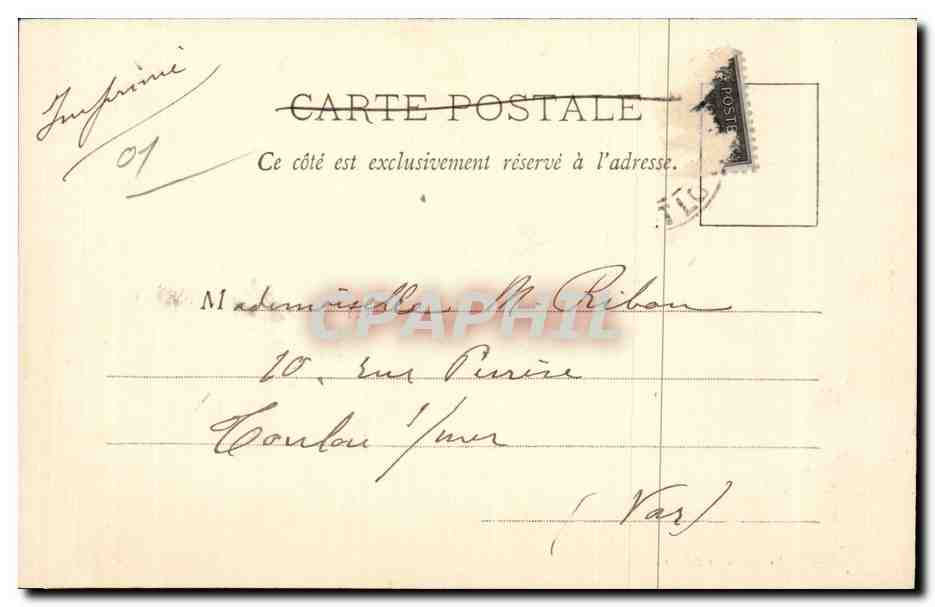 Imprimé
01
CARTE POSTALE
POSTE
Ce côté est exclusivement réservé à l'adresse.
Mademoiselle M Ribon
CPAPHIL
10, rue
Toulon s/mer
(Var)